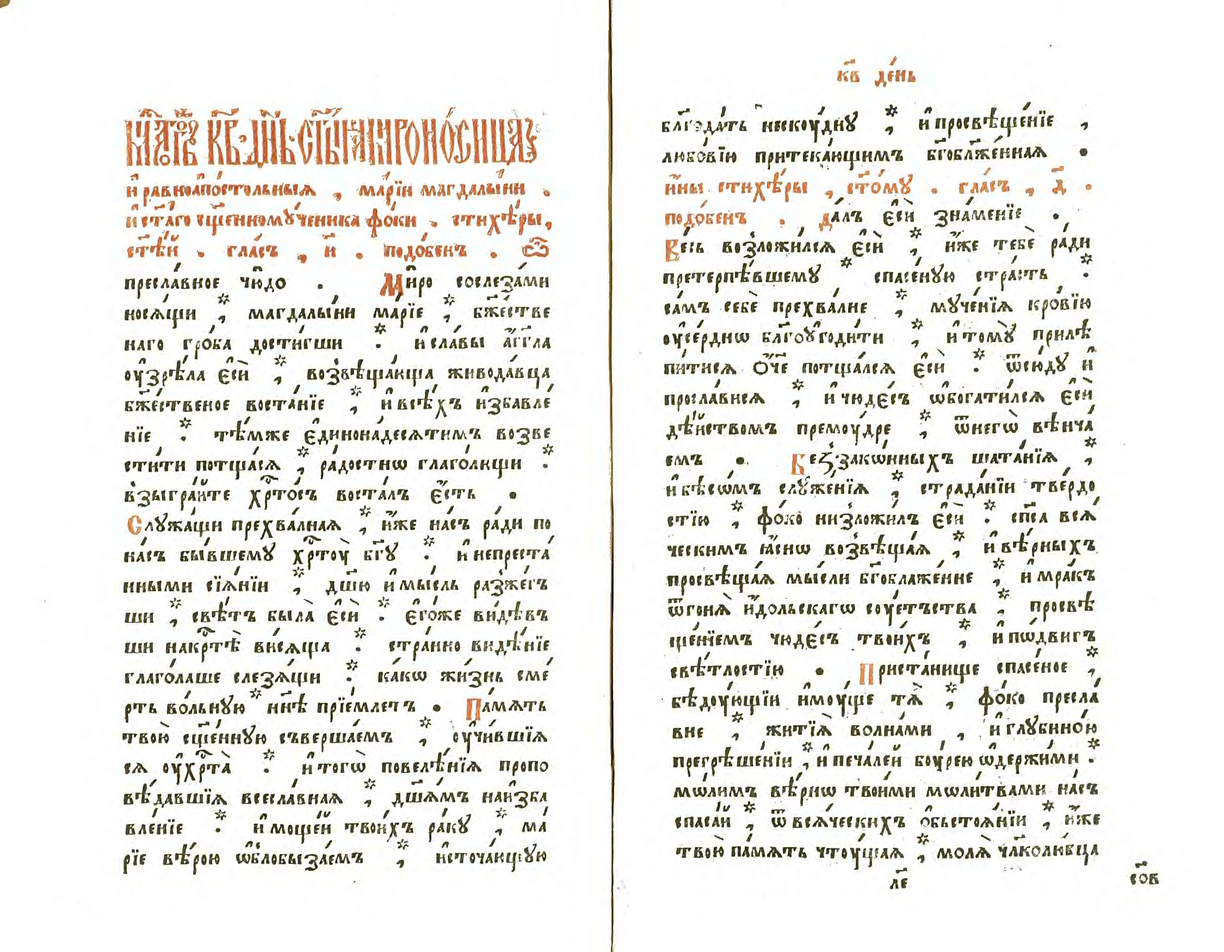 мцⷭ҇а то́гѡже. кв҃. дн҃ь. ст҃ы́ѧ мѷроно́сица
и҆ равноапо́стольныѧ , марі́и магдалы́ни .
и҆ ст҃а́го сщ҃енному́ченика фо́ки . стихѣ́ры,
ст҃ѣ́й . гла́съ , и҃ . подо́бенъ . Ѽ
пресла́вное чю́до . Ми́ро сослеза́ми
нося́щи , * магдалы́ни марі́е , * бж҃е́стве
наго гро́ба дости́гши . * и҆ сла́вы а҆́гг҃ла
оу҆зрѣ́ла є҆сѝ , * возвѣща́юща живода́вца
бж҃е́ственое воста́нїе , * и҆ всѣ́хъ и҆збавле́
нїе . * тѣ́мже є҆динона́десѧтимъ возве
сти́ти потща́сѧ , * ра́достнѡ глаго́лющи . *
взыгра́йте хрⷭ҇то́съ воста́лъ є҆́сть .
Служа́щи прехва́лнаѧ , * и҆́же на́съ ра́ди по
на́съ бы́вшему хрⷭ҇тоу̀ бг҃у . * и҆ непреста́
нными сїѧ́нїи , * дш҃ю и҆ мы́сль разже́гъ
ши , * свѣ́тъ была̀ є҆сѝ . * є҆го́же ви́дѣвъ
ши на крⷭ҇тѣ̀ ви́сѧща . * стра́нно видѣ́нїе
глаго́лаше слезѧ́щи . * ка́кѡ жи́знь сме́
рть во́льную * нн҃ѣ прїе́млетъ . Па́мѧть
твою̀ сщ҃е́нную съверша́емъ , * оу҆чи́вшїѧ
сѧ оу҆ хрⷭ҇та̀ . * и҆ тогѡ̀ повелѣ́нїѧ пропо
вѣ́давшїѧ всесла́внаѧ , * дш҃а́мъ на и҆зба
вле́нїе . * и҆ моще́й твои́хъ ра́ку , * ма
рі́е вѣ́рою ѡ҆блобыза́емъ , * и҆сточа́ющую
кв҃ де́нь
благода́ть неску́дну , * и҆ просвѣще́нїе ,
любо́вїю притека́ющимъ бг҃облаже́ннаѧ .
и҆́ны стихѣ́ры , ст҃о́му . гла́съ , д҃ .
подо́бенъ . Да́лъ є҆сѝ зна́менїе .
Ве́сь возложи́лсѧ є҆сѝ , * и҆́же тебѐ ра́ди
претерпѣ́вшему * спасе́ную стра́сть . *
са́мъ себѐ прехва́лне , * муче́нїѧ кро́вїю
оу҆се́рднѡ благоугоди́ти , * и҆ тому̀ прилѣ
пи́тисѧ о҆́ч҃е потща́лсѧ є҆сѝ . * ѿсю́ду и҆
просла́висѧ , * и҆ чюде́съ ѡ҆богати́лсѧ є҆сѝ
дѣ́йствомъ прему́дре , * ѿ негѡ̀ вѣнча́
емъ . Беззако́нныхъ шата́нїѧ , *
и҆ бѣсѡ́мъ служе́нїѧ , * страда́нїи тве́рдо
стїю , * фо́ко низложи́лъ є҆сѝ . * сп҃са всѧ́
ческимъ ꙗ҆́снѡ возвѣща́ѧ , * и҆ вѣ́рныхъ
просвѣща́ѧ мы́сли бг҃облаже́нне , * и҆ мра́къ
ѿгонѧ̀ и҆́дольскагѡ соуе́тъства , * просвѣ
ще́нїемъ чюде́съ твои́хъ , * и҆ по́двигъ
свѣ́тлостїю . Приста́нище спасе́ное , *
бѣ́дующїи и҆му́ще тѧ̀ , * фо́ко пресла́
вне , * житїѧ̀ волна́ми , * и҆ глубино́ю
прегрѣше́нїи , * и҆ печа́лей бу́рею ѡ҆держи́ми . *
мо́лимъ вѣ́рнѡ твои́ми мѡли́твами на́съ
спаса́й , * ѿ всѧ́ческихъ ѡ҆бьстоѧ́нїи , * и҆́же
твою̀ па́мѧть чту́щаѧ , * молѧ̀ чл҃колю́бца
ле҃ сов